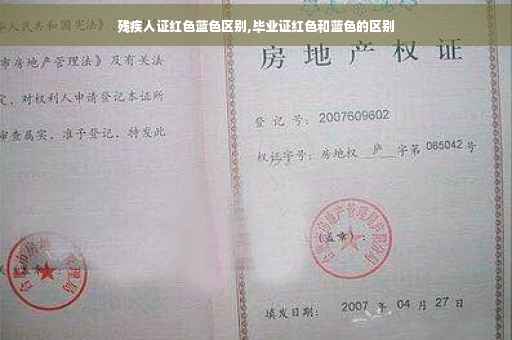 残疾人证红色蓝色区别,毕业证红色和蓝色的区别
人民共和国宪法》及
市房地产管理法》及有关法
定,对权利人申请登记本证所
审查属实,准予登记,特发此
房地产权证
登记号:2007609602
权证字号:房地权 庐 字第 065042 号
(盖章):
填发日期: 2007 年 04 月 27 日